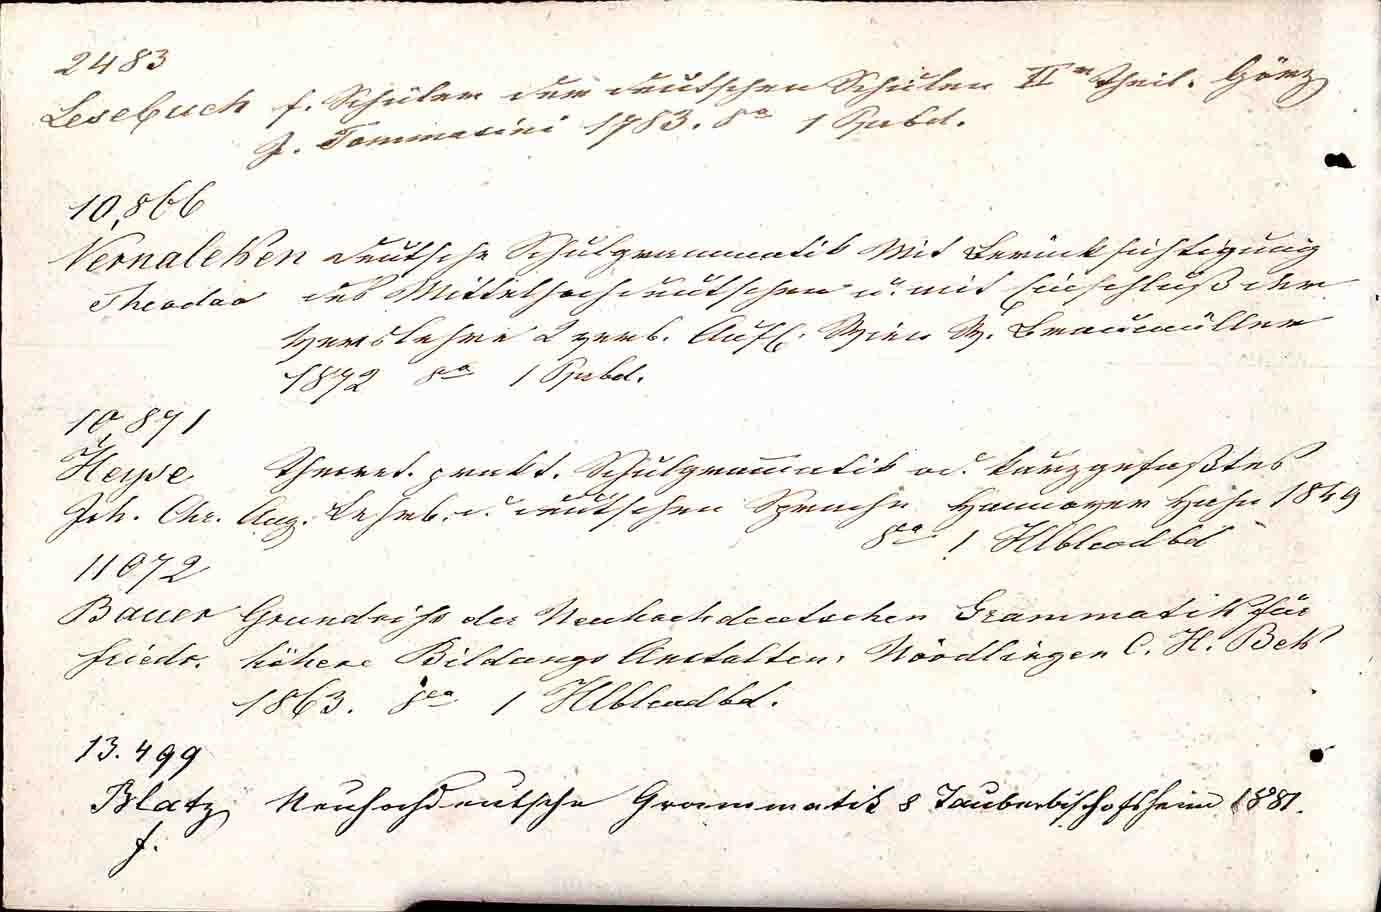 2483
Lesebuch f. Schüler der deutschen Schulen II.r Theil. Görz
J. Tommasini 1783. 8o 1 Ppbd.
10,866
Vernaleken deutsche Schulgrammatik Mit Berücksichtigung
Theodor des Mittelhochdeutschen u. mit Einschluß der
Verslehre 2 verb. Aufl. Wien W. Braumüller
1872 8o 1 Ppbd.
10,871
Heyse Theoret. prakt. Schulgram̅atik od. kurzgefaßtes
Joh. Chr. Aug. Lehrb. d. deutschen Sprache Hannover Hahn 1849
8o 1 Hlbleadbd
11072
Bauer Grundriss der Neuhochdeutschen Grammatik für
Friedr. höhere Bildungs Anstalten. Nördlingen C. H. Bek
1863. 8o 1 Hlbleadbd.
13.499
Blatz Neuhochdeutsche Grammatik 8 Tauberbischofsheim 1881.
f.